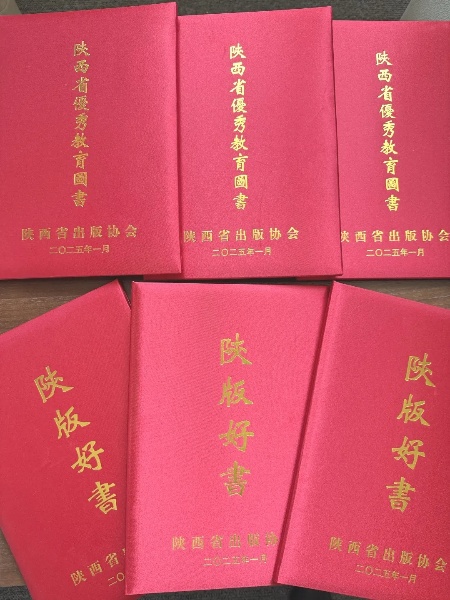 陝西省優秀教育圖書
陕西省出版协会
二〇二五年一月
陝西省優秀教育圖書
陕西省出版协会
二〇二五年一月
陝西省優秀教育圖書
陕西省出版协会
二〇二五年一月
陝版好書
陕西省出
二〇
陝版好書
陕西省出版协会
二〇二五年一月
陝版好書
陕西省出版协会
二〇二五年一月